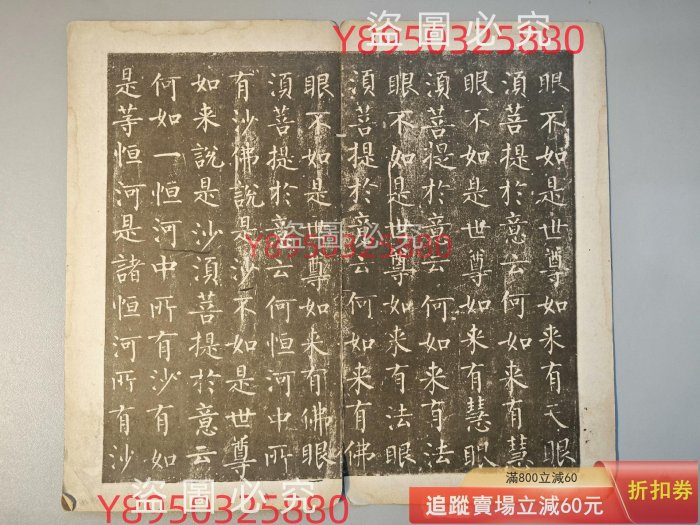 盜圖必究
X8950325880
眼不如是世尊如来有天眼
須菩提於意云何如来有慧
眼不如是世尊如来有慧眼
須菩提於意云何如来有法
眼不如是世尊如来有法眼
須菩提於意云何如来有佛
眼不如是世尊如来有佛眼
須菩提於意云何恒河中所
有沙佛說是沙不如是世尊
如来說是沙須菩提於意云
何如一恒河中所有沙有如
是等恒河是諸恒河所有沙
盜圖必究
X8950325880
盜圖必究
X8950325880
滿800立減60
追蹤賣場立減60元
折扣券